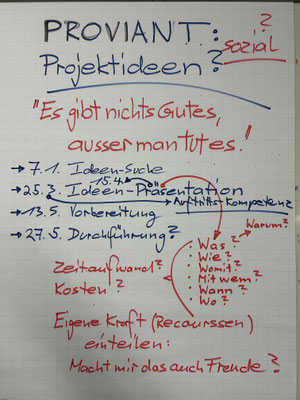 PROVIANT:
?
sozial
Projektideen?
"Es gibt nichts Gutes,
ausser man tut es."
→ 7.1. Ideen-Suche
15.4.
→ 25.3. Ideen-Präsentation
Auftritts-Kompetenz
→ 13.5. Vorbereitung
→ 27.5. Durchführung?
Warum?
Was?
Wie?
Womit?
Mit wem?
Wann?
Wo?
Zeitaufwand?
Kosten?
Eigene Kraft (Recourssen)
einteilen:
Macht mir das auch Freude?